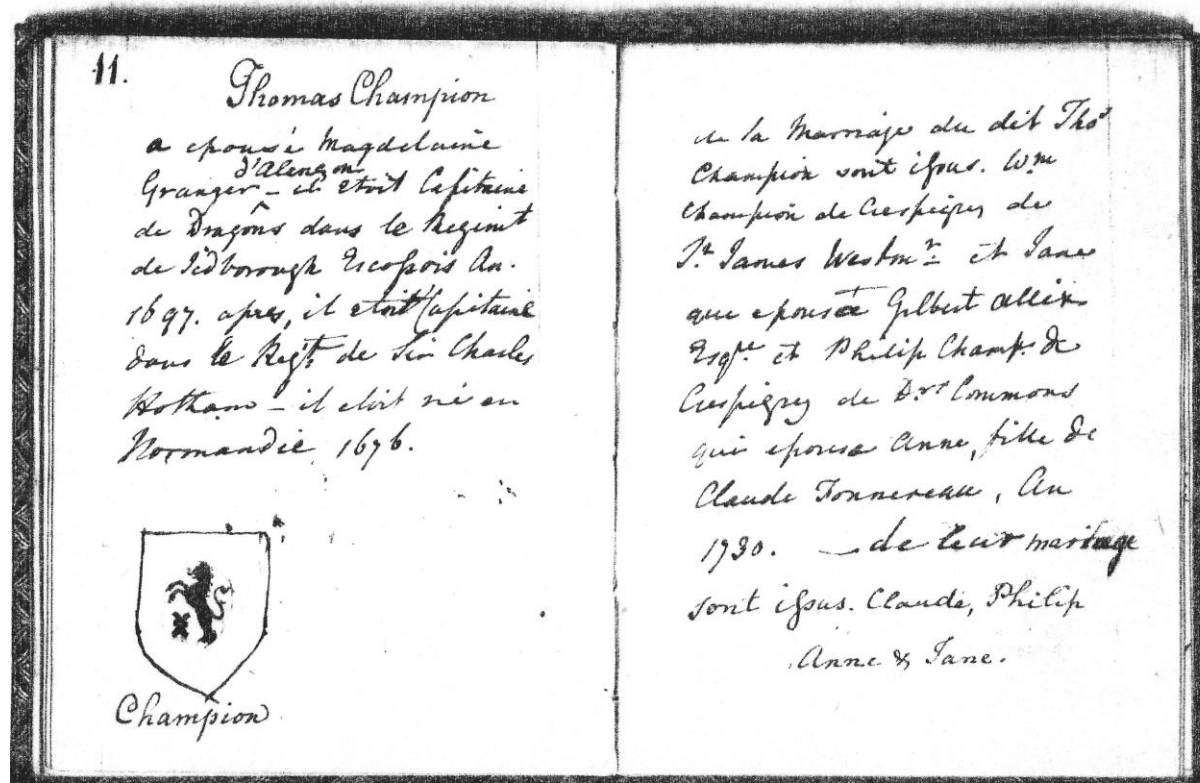 11.
Thomas Champion
a epousé Magdelaine
d'Alençon
Granger - il etoit Capitaine
de Dragôns dans le Regimt
de Jedborough Escossois An.
1697. apres, il etoit Capitaine
dans le Regt. de Sir Charles
Hotham - il etoit né en
Normandie 1676.
Champion
de la Marriage du dit Thos
Champion sont issus. Wm
Champion de Crespigny de
St. James Westmr. et Jane
que epousa Gilbert Allix
Esqre et Philip Champ. de
Crespigny de Drs Commons
qui epousa Anne, fille de
Claude Fonnereau, An
1730. - de leur mariage
sont issus. Claude, Philip
Anne & Jane.